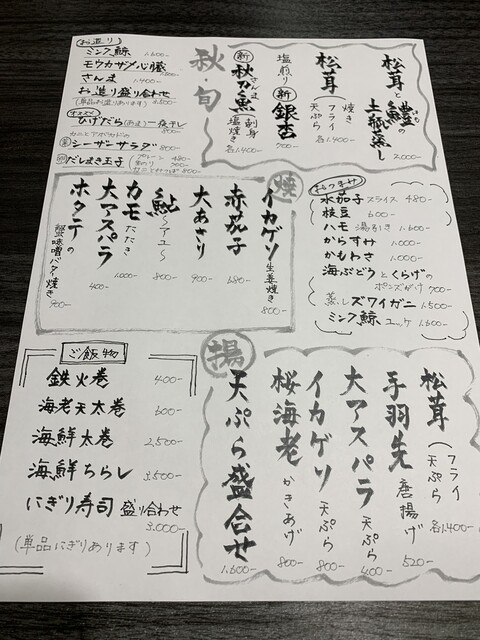 お造り
ミンク鯨 1.600-
モウカザメ心臓
さんま 1.400-
お造り盛り合わせ
(単品お造りあります) 2.500-
オススメ
ひげだら(あま)一夜干し 800-
カニとアボカドの
シーザーサラダ 800-
だしまき玉子
プレーン 480-
秋・旬
松茸と鱧の土瓶蒸し 2.000-
松茸
焼き
フライ
天ぷら
各1.400-
塩煎り 新銀杏 700-
新 秋刀魚 さんま
刺身
塩焼き
各1.400-
焼
イカゲソ 生姜焼き 800-
赤茄子 680-
大あさり 900-
鮎 〜アユ〜 800-
カモ たたき 1.000-
大アスパラ 400-
ホタテの
味噌バター焼き 900-
おつまみ
水茄子 スライス 480-
枝豆 600-
ハモ 湯引き 1.600-
からすみ 1.000-
かもわさ 1.000-
海ぶどうとくらげの
ポンズがけ 700-
蒸し ズワイガニ 1.500-
ミンク鯨 ユッケ 1.600-
ご飯物
鉄火巻 400-
海老天太巻 600-
海鮮太巻 2,500-
海鮮ちらし 3,500-
にぎり寿司 盛り合わせ
3.000-
(単品にぎりあります)
揚
松茸
フライ
天ぷら
各1.400-
手羽先 唐揚げ 520-
大アスパラ 天ぷら 400-
イカゲソ 天ぷら 800-
桜海老 かきあげ 800-
天ぷら盛合せ 1.600-